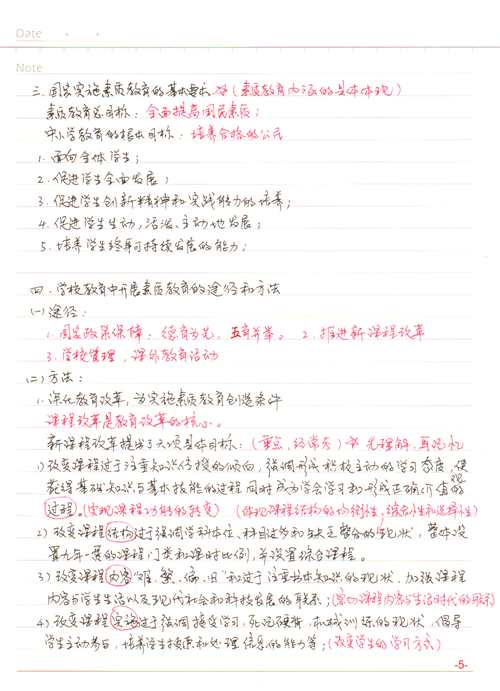 Date
Note
三、国家实施素质教育的基本要求 (素质教育内涵的具体体现)
素质教育总目标：全面提高国民素质；
中小学教育的根本目标：培养合格的公民
1. 面向全体学生；
2. 促进学生全面发展；
3. 促进学生创新精神和实践能力的培养；
4. 促进学生生动，活泼、主动地发展；
5. 培养学生终身可持续发展的能力；
四、学校教育中开展素质教育的途径和方法
(一) 途径：
1. 国家政策保障：德育为先，五育并举。 2. 推进新课程改革
3. 学校管理，课外教育活动
(二) 方法：
1. 深化教育改革，为实施素质教育创造条件
课程改革是教育改革的核心。
新课程改革提出了六项具体目标：(重点、经常考) 先理解，再记忆
1) 改变课程过于注重知识传授的倾向，强调形成积极主动的学习态度，使
获得基础知识与基本技能的过程同时成为学会学习和形成正确价值观的
过程。(实现课程功能的转变) (体现课程结构的均衡性，综合性和选择性)
2) 改变课程结构过于强调学科本位、科目过多和缺乏整合的现状，整体设
置九年一贯的课程门类和课时比例，并设置综合课程。
3) 改变课程内容“难、繁、偏、旧”和过于注重书本知识的现状，加强课程
内容与学生生活以及现代社会和科技发展的联系；(密切课程内容与生活时代的联系)
4) 改变课程实施过于强调接受学习，死记硬背，机械训练的现状，倡导
学生主动参与，培养学生搜集和处理信息的能力等；(改变学生的学习方式)
-5-